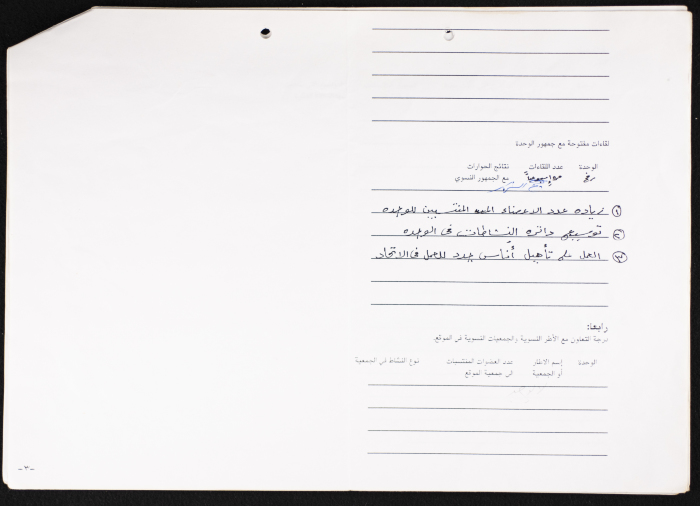 لقاءات مفتوحة مع جمهور الوحدة
الوحدة عدد اللقاءات نتائج الحوارات
رفح مع الجمهور النسوي
١) زياده عدد الاعضاء المنتسبين للوحده
٢) توسيع دائره النشاطات في الوحده
٣) العمل على تأهيل أناس جدد للعمل في الاتحاد
رابعا:
درجة التعاون مع الأطر النسوية والجمعيات النسوية في الموقع.
الوحدة إسم الاطار عدد العضوات المنتسبات نوع النشاط في الجمعية
أو الجمعية في جمعية الموقع
-٣-